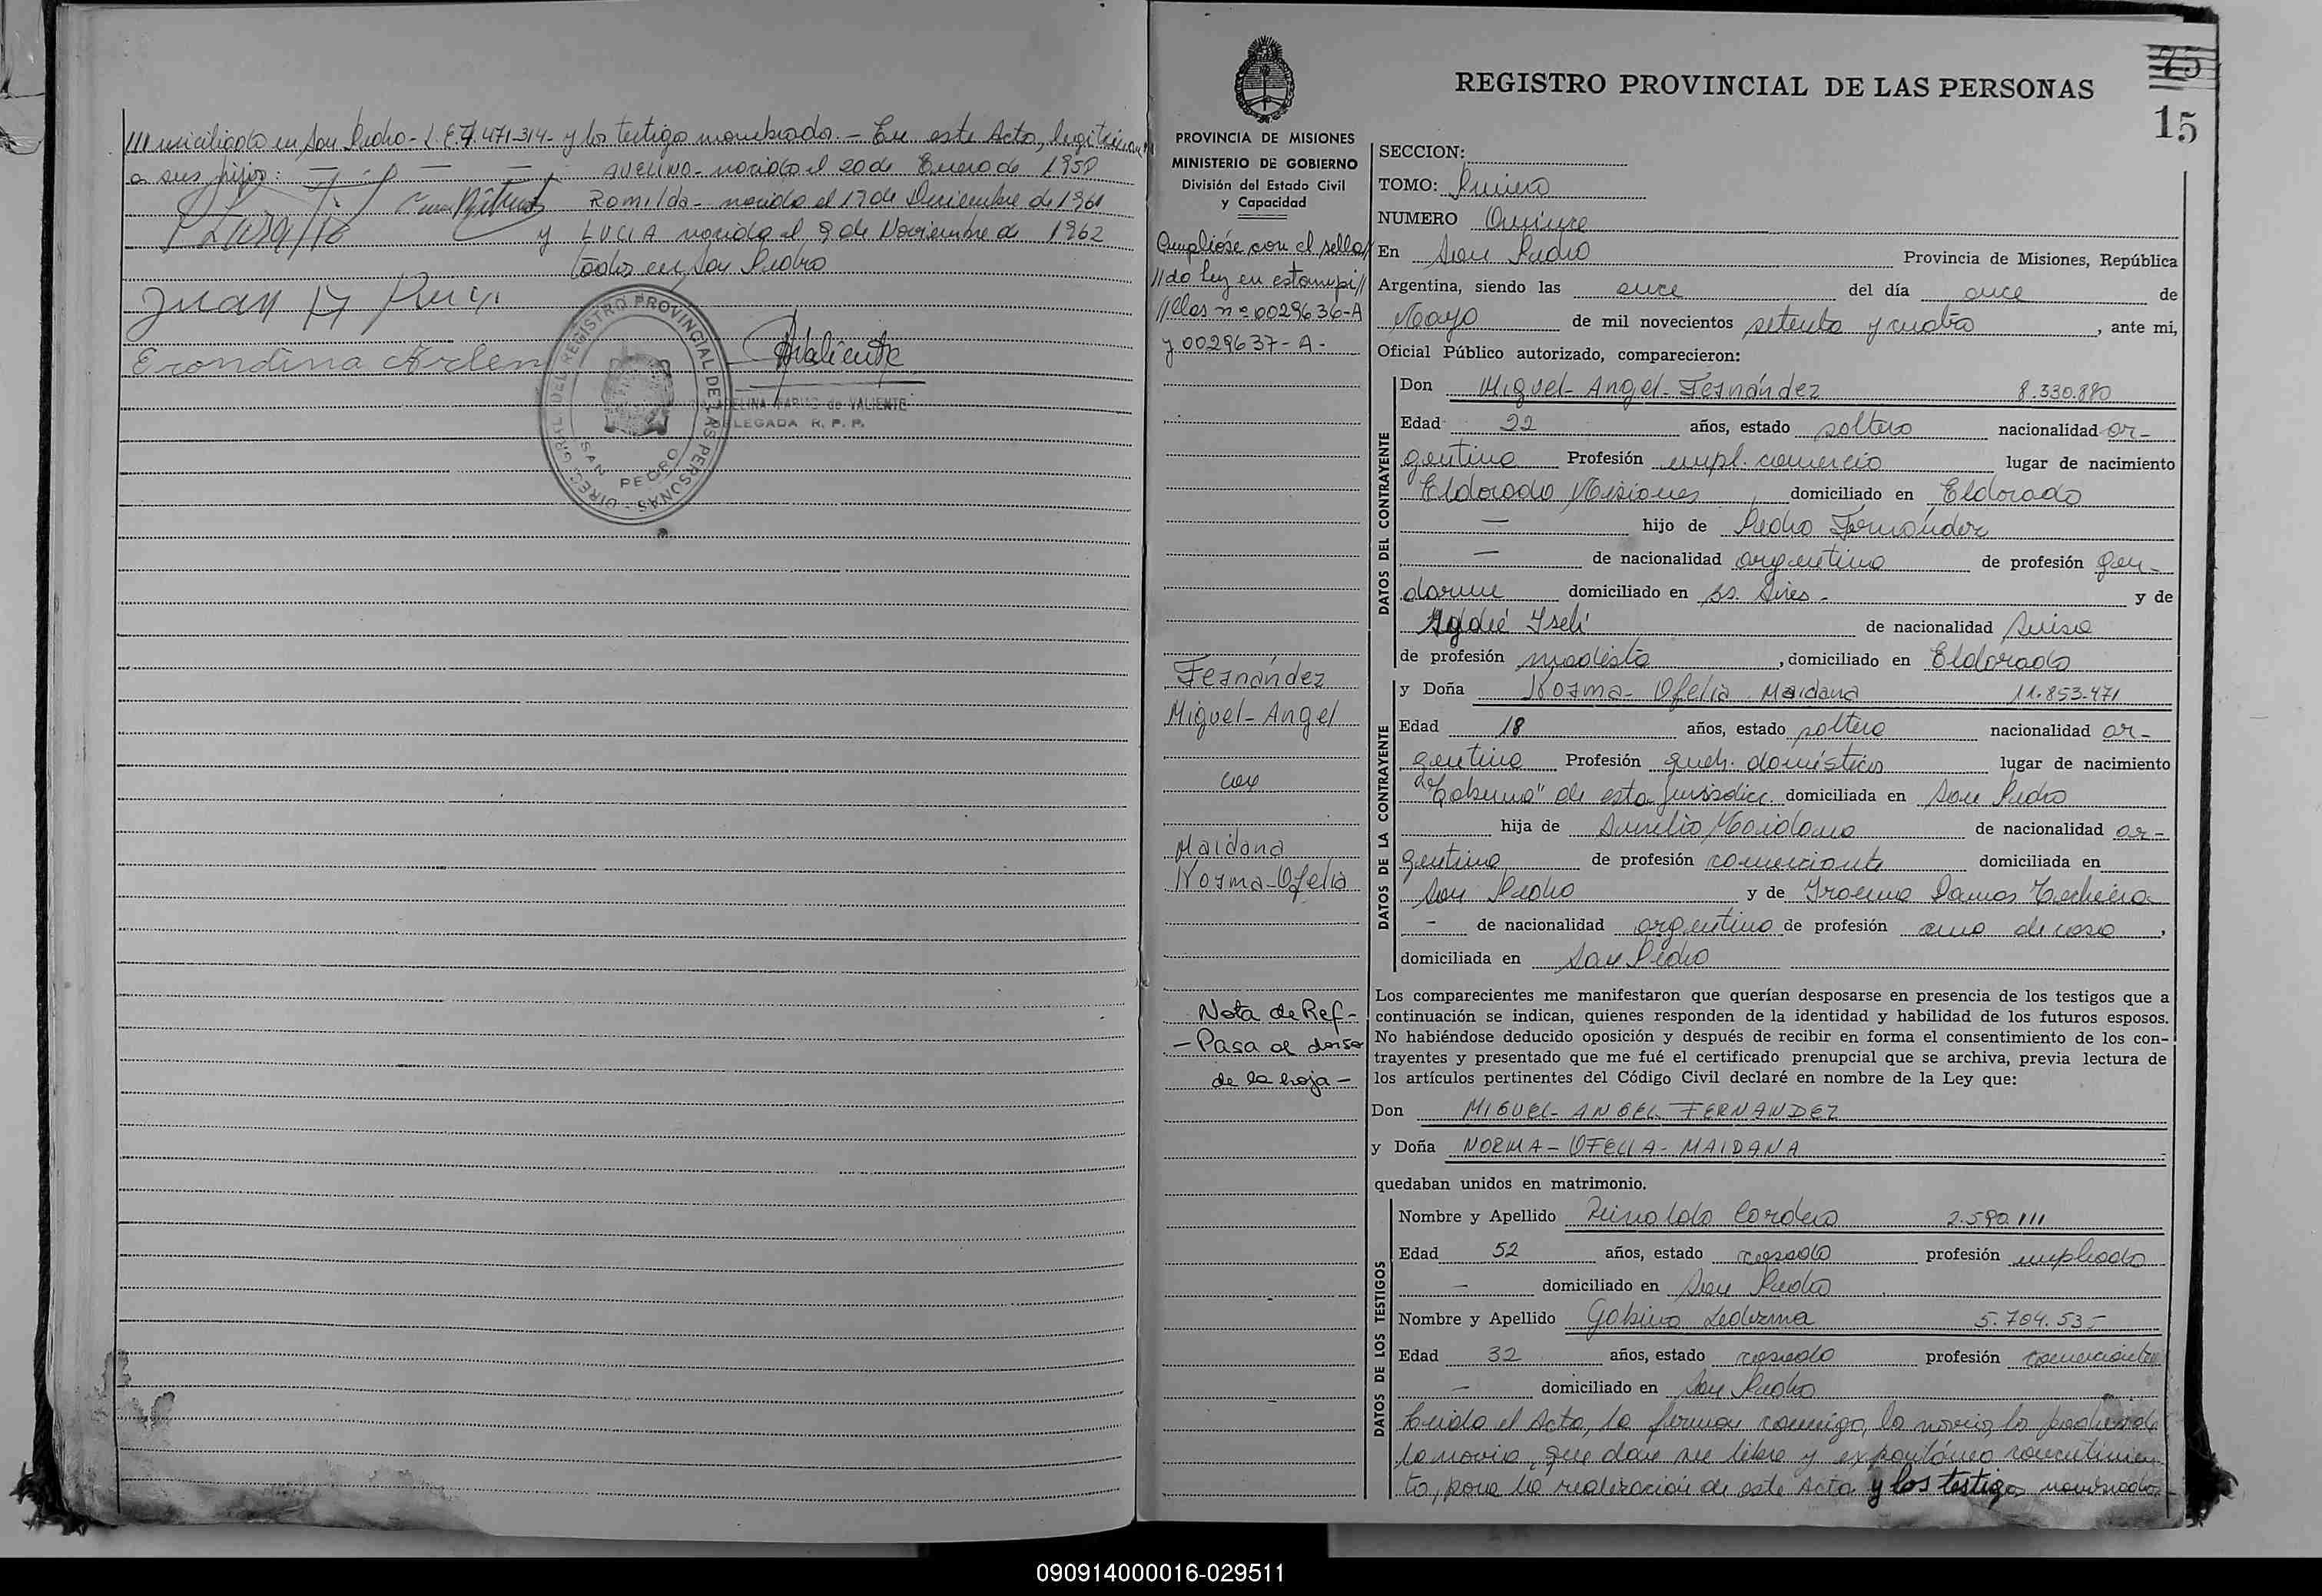 ///miciliado en San Pedro - L.E. 7.471-314- y los testigos nombrados. - En este Acto, legitiman
a sus hijos: AVELINO - nacido el 20 de Enero de 1958
Romilda - nacida el 17 de Diciembre de 1961
y LUCIA nacida el 9 de Noviembre de 1962
todos en San Pedro
Juan
Erondina
Avaliente
DIRECCION GRAL DEL REGISTRO PROVINCIAL DE LAS PERSONAS
SAN PEDRO
de VALIENTE
DELEGADA R. P. P.
75
15
REGISTRO PROVINCIAL DE LAS PERSONAS
PROVINCIA DE MISIONES
MINISTERIO DE GOBIERNO
División del Estado Civil
y Capacidad
Cumplióse con el sella//
//do ley en estampi//
//llas nº 0029636-A
y 0029637-A-
Fernández
Miguel-Angel
con
Maidana
Norma-Ofelia
Nota de Ref-
-Pasa al dorso
de la hoja-
SECCION:
TOMO: Primero
NUMERO Quince
En San Pedro Provincia de Misiones, República
Argentina, siendo las once del día once de
Mayo de mil novecientos setenta y cuatro, ante mi,
Oficial Público autorizado, comparecieron:
DATOS DEL CONTRAYENTE
Don Miguel-Angel-Fernández 8.330.880
Edad 22 años, estado soltero nacionalidad ar-
gentina Profesión empl. comercio lugar de nacimiento
Eldorado Misiones, domiciliado en Eldorado
- hijo de Pedro Fernández
- de nacionalidad argentina de profesión gen-
darme domiciliado en Bs. Aires - y de
Iseli de nacionalidad Suiza
de profesión modista, domiciliado en Eldorado
DATOS DE LA CONTRAYENTE
y Doña Norma-Ofelia Maidana 11.853.471
Edad 18 años, estado soltera nacionalidad ar-
gentina Profesión queh. domésticos lugar de nacimiento
de esta jurisdicc. domiciliada en San Pedro
hija de Aurelio Maidana de nacionalidad ar-
gentina de profesión comerciante domiciliada en
San Pedro y de Ramos
- de nacionalidad argentina de profesión ama de casa,
domiciliada en San Pedro
Los comparecientes me manifestaron que querían desposarse en presencia de los testigos que a
continuación se indican, quienes responden de la identidad y habilidad de los futuros esposos.
No habiéndose deducido oposición y después de recibir en forma el consentimiento de los con-
trayentes y presentado que me fué el certificado prenupcial que se archiva, previa lectura de
los artículos pertinentes del Código Civil declaré en nombre de la Ley que:
Don MIGUEL-ANGEL FERNANDEZ
y Doña NORMA-OFELIA-MAIDANA
quedaban unidos en matrimonio.
DATOS DE LOS TESTIGOS
Nombre y Apellido Reinaldo Cordero 2.590.111
Edad 52 años, estado casado profesión empleado
- domiciliado en San Pedro
Nombre y Apellido Gabino Ledezma 5.704.535-
Edad 32 años, estado casado profesión comerciante
- domiciliado en San Pedro
Leida el Acta, la firman conmigo, la novia, los padres de
la novia, que dan su libre y expontáneo consentimien
to, para la realización de este Acto y los testigos nombrados
090914000016-029511